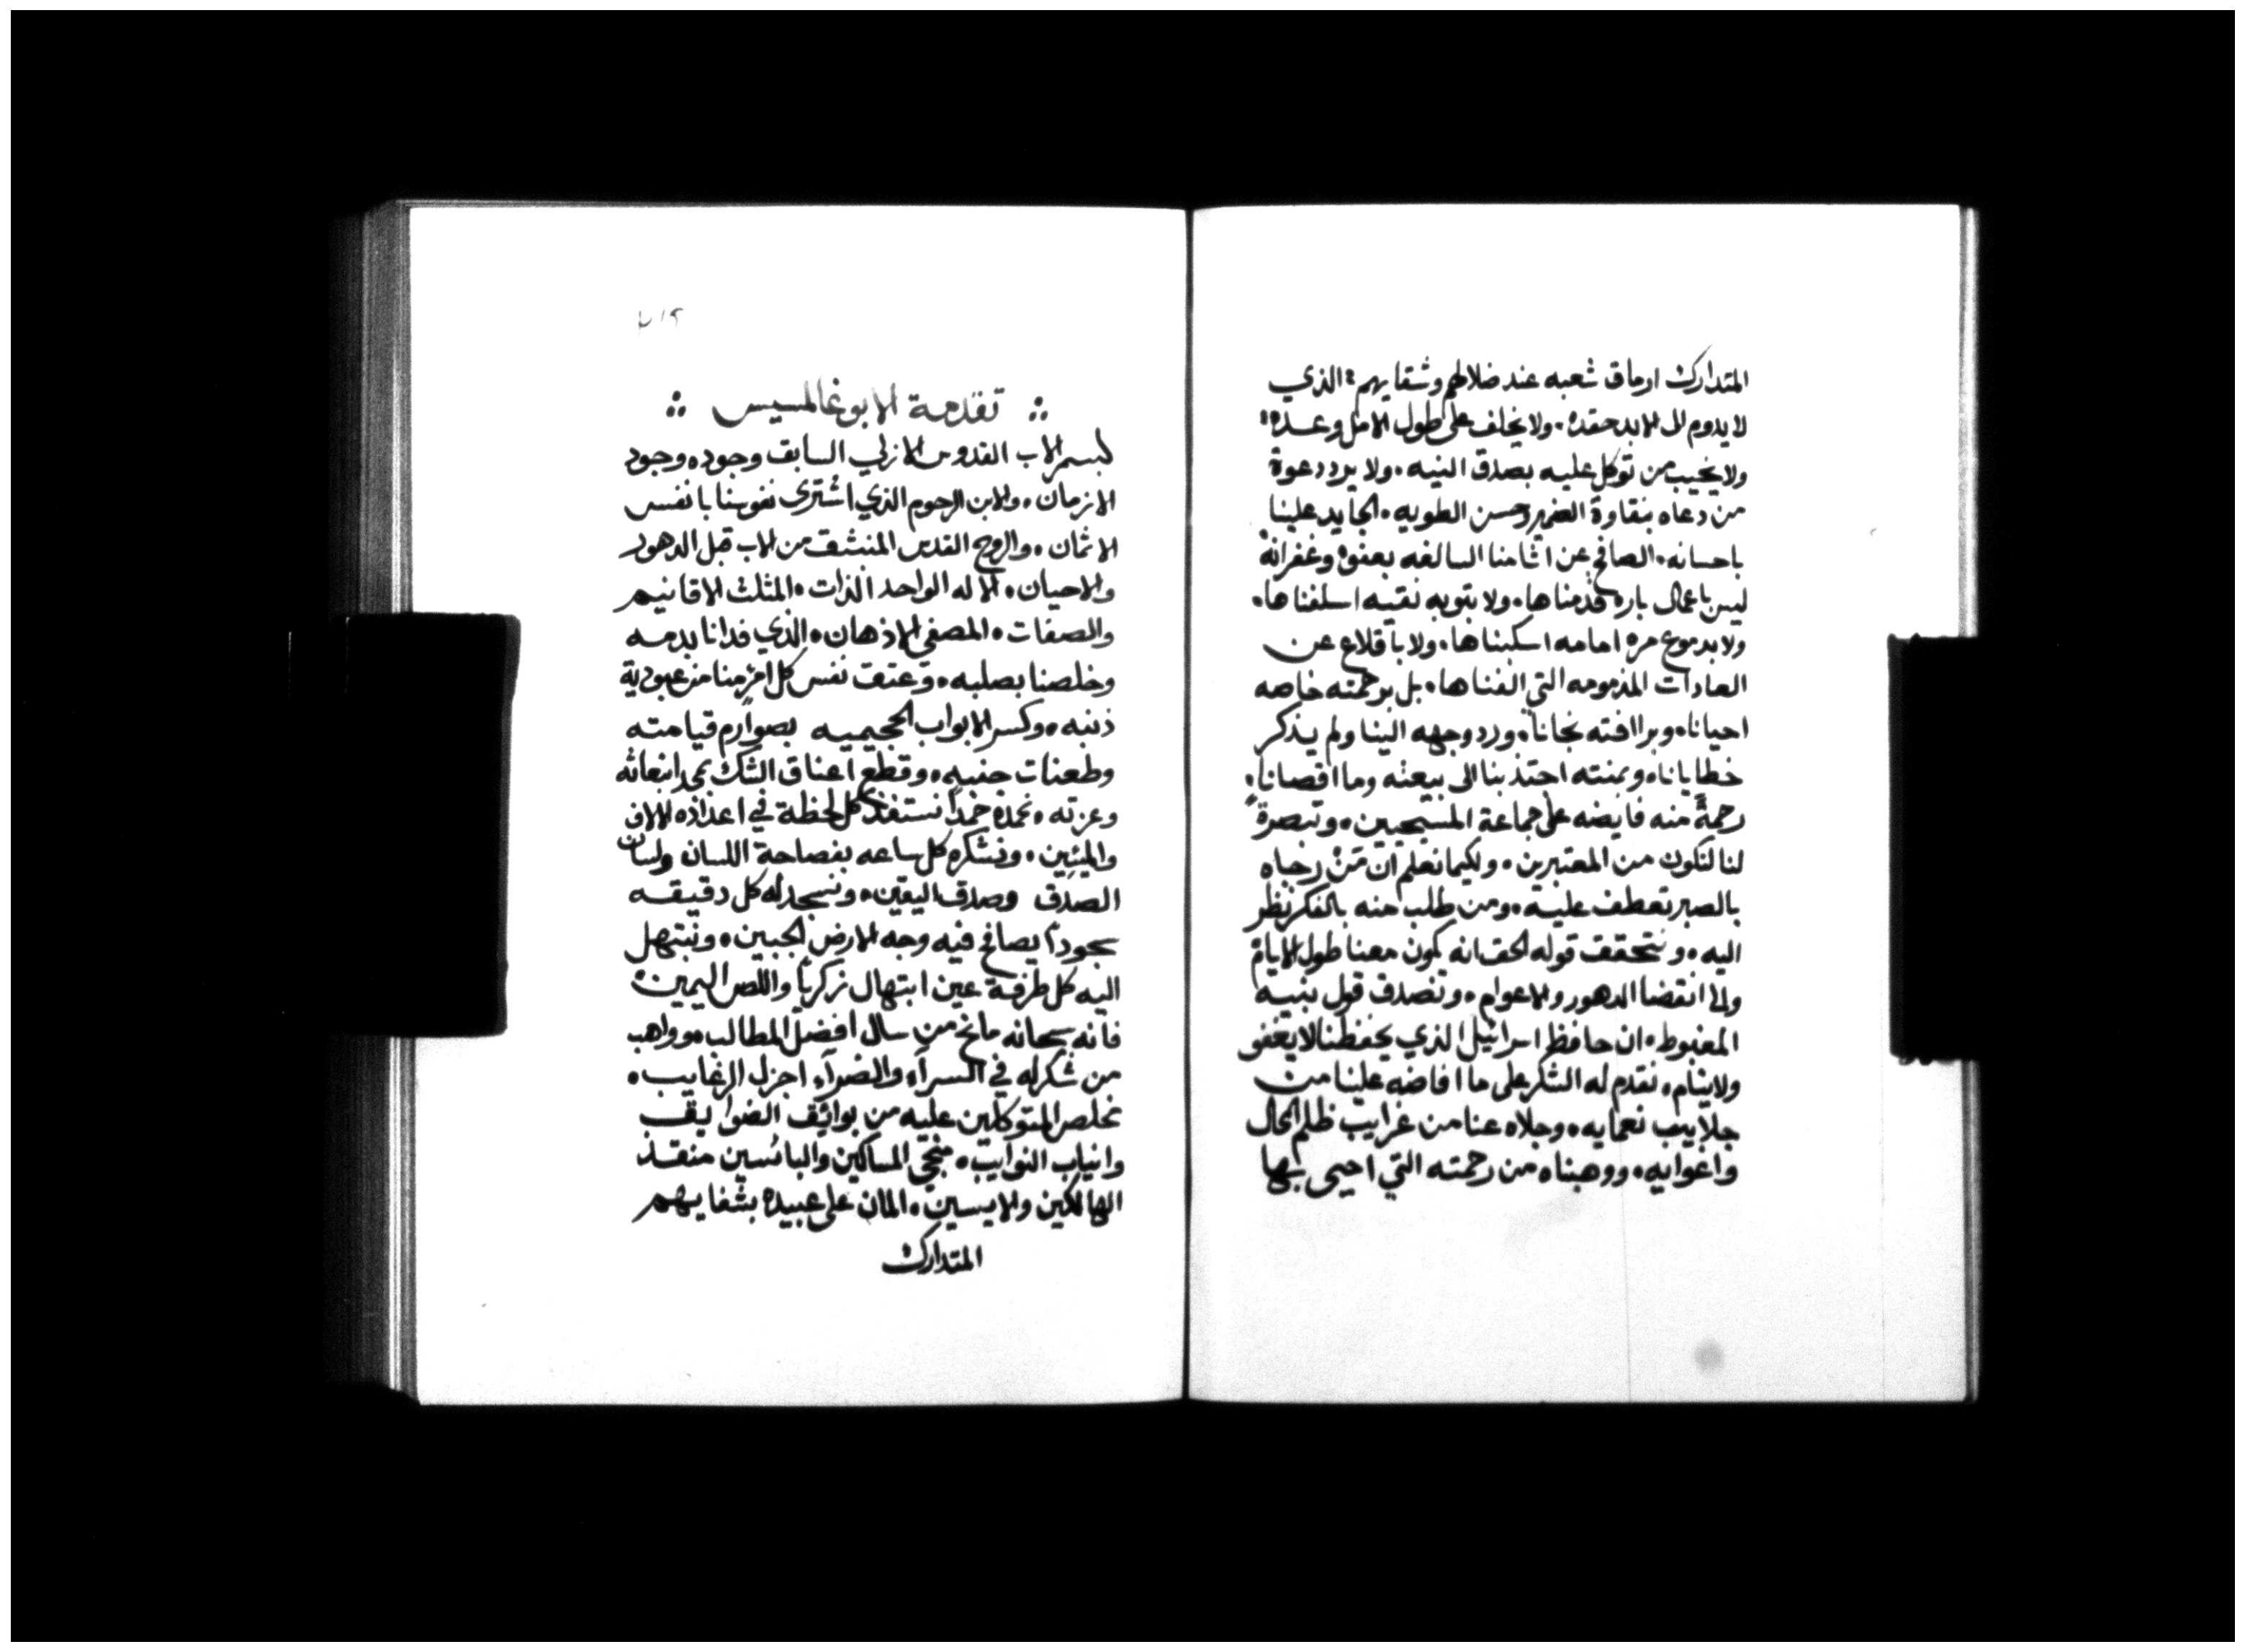 ٢١٩
تقدمة الابوغالمسيس
بسم الاب القدوس الازلي السابق وجوده وجود
الازمان، والابن الرحوم الذي اشترى نفوسنا بانفس
الاثمان، والروح القدس المنبثق من الاب قبل الدهور
والاحيان، الاله الواحد الذات، المثلث الاقانيم
والصفات، المصفي الاذهان، الذي فدانا بدمه
وخلصنا بصلبه، وعتق نفس كل امرٍ منا من عبودية
ذنبه، وكسر الابواب الجحيميه بصوارم قيامته
وطعنات جنبه، وقطع اعناق الشك انبعاثه
وعزته، نحمده حمداً نستنفذ كل لحظة في اعداده الالاف
والميئين، ونشكره كل ساعه بفصاحة اللسان ولسان
الصدق وصدق اليقين، ونسجد له كل دقيقه
سجوداً يصافح فيه وجه الارض الجبين، ونبتهل
اليه كل طرفة عين ابتهال زكريا واللص اليمين،
فانه سبحانه مانح من سال افضل المطالب، وواهب
من شكر له في السرآء والضرآء اجزل الرغايب،
مخلص المتوكلين عليه من بوائق الضوايق
وانياب النوايب، منجي المساكين والبائسين منقذ
الهالكين والايسين، المان على عبيده بشفايهم
المتدارك
المتدارك ارماق شعبه عند ضلالهم وشقايهم، الذي
لا يدوم الى الابد حقده، ولا يخلف على طول الامل وعده،
ولا يخيب من توكل عليه بصدق النيه، ولا يرد دعوة
من دعاه بنقاوة الضمير وحسن الطويه، الجايد علينا
باحسانه، الصافح عن اثامنا السالفه بعفوه وغفرانه
ليس باعمال باره قدمناها، ولا بتوبه نقيه اسلفناها،
ولا بدموع مره امامه اسكبناها، ولا باقلاع عن
العادات المذمومه التي الفناها، بل برحمته خاصه
احيانا، وبراافته نجانا، ورد وجهه الينا ولم يذكر
خطايانا، وبمنته اجتذبنا الى بيعته وما اقصانا،
رحمةً منه فايضه على جماعة المسيحيين، وتبصرةً
لنا لنكون من المعتبرين، ولكيما نعلم ان من رجاه
بالصبر تعطف عليه، ومن طلب منه بالفكر نظر
اليه، ونتحقق قوله الحق انه يكون معنا طول الايام
والى انقضا الدهور والاعوام، ونصدق قول نبيه
المغبوط، ان حافظ اسرائيل الذي يحفظنا لا يغفو
ولا ينام، نقدم له الشكر على ما افاضه علينا من
جلابيب نعمايه، وجلاه عنا من غرايب ظلم الحال
واغوايه، ووهبناه من رحمته التي احيى بها